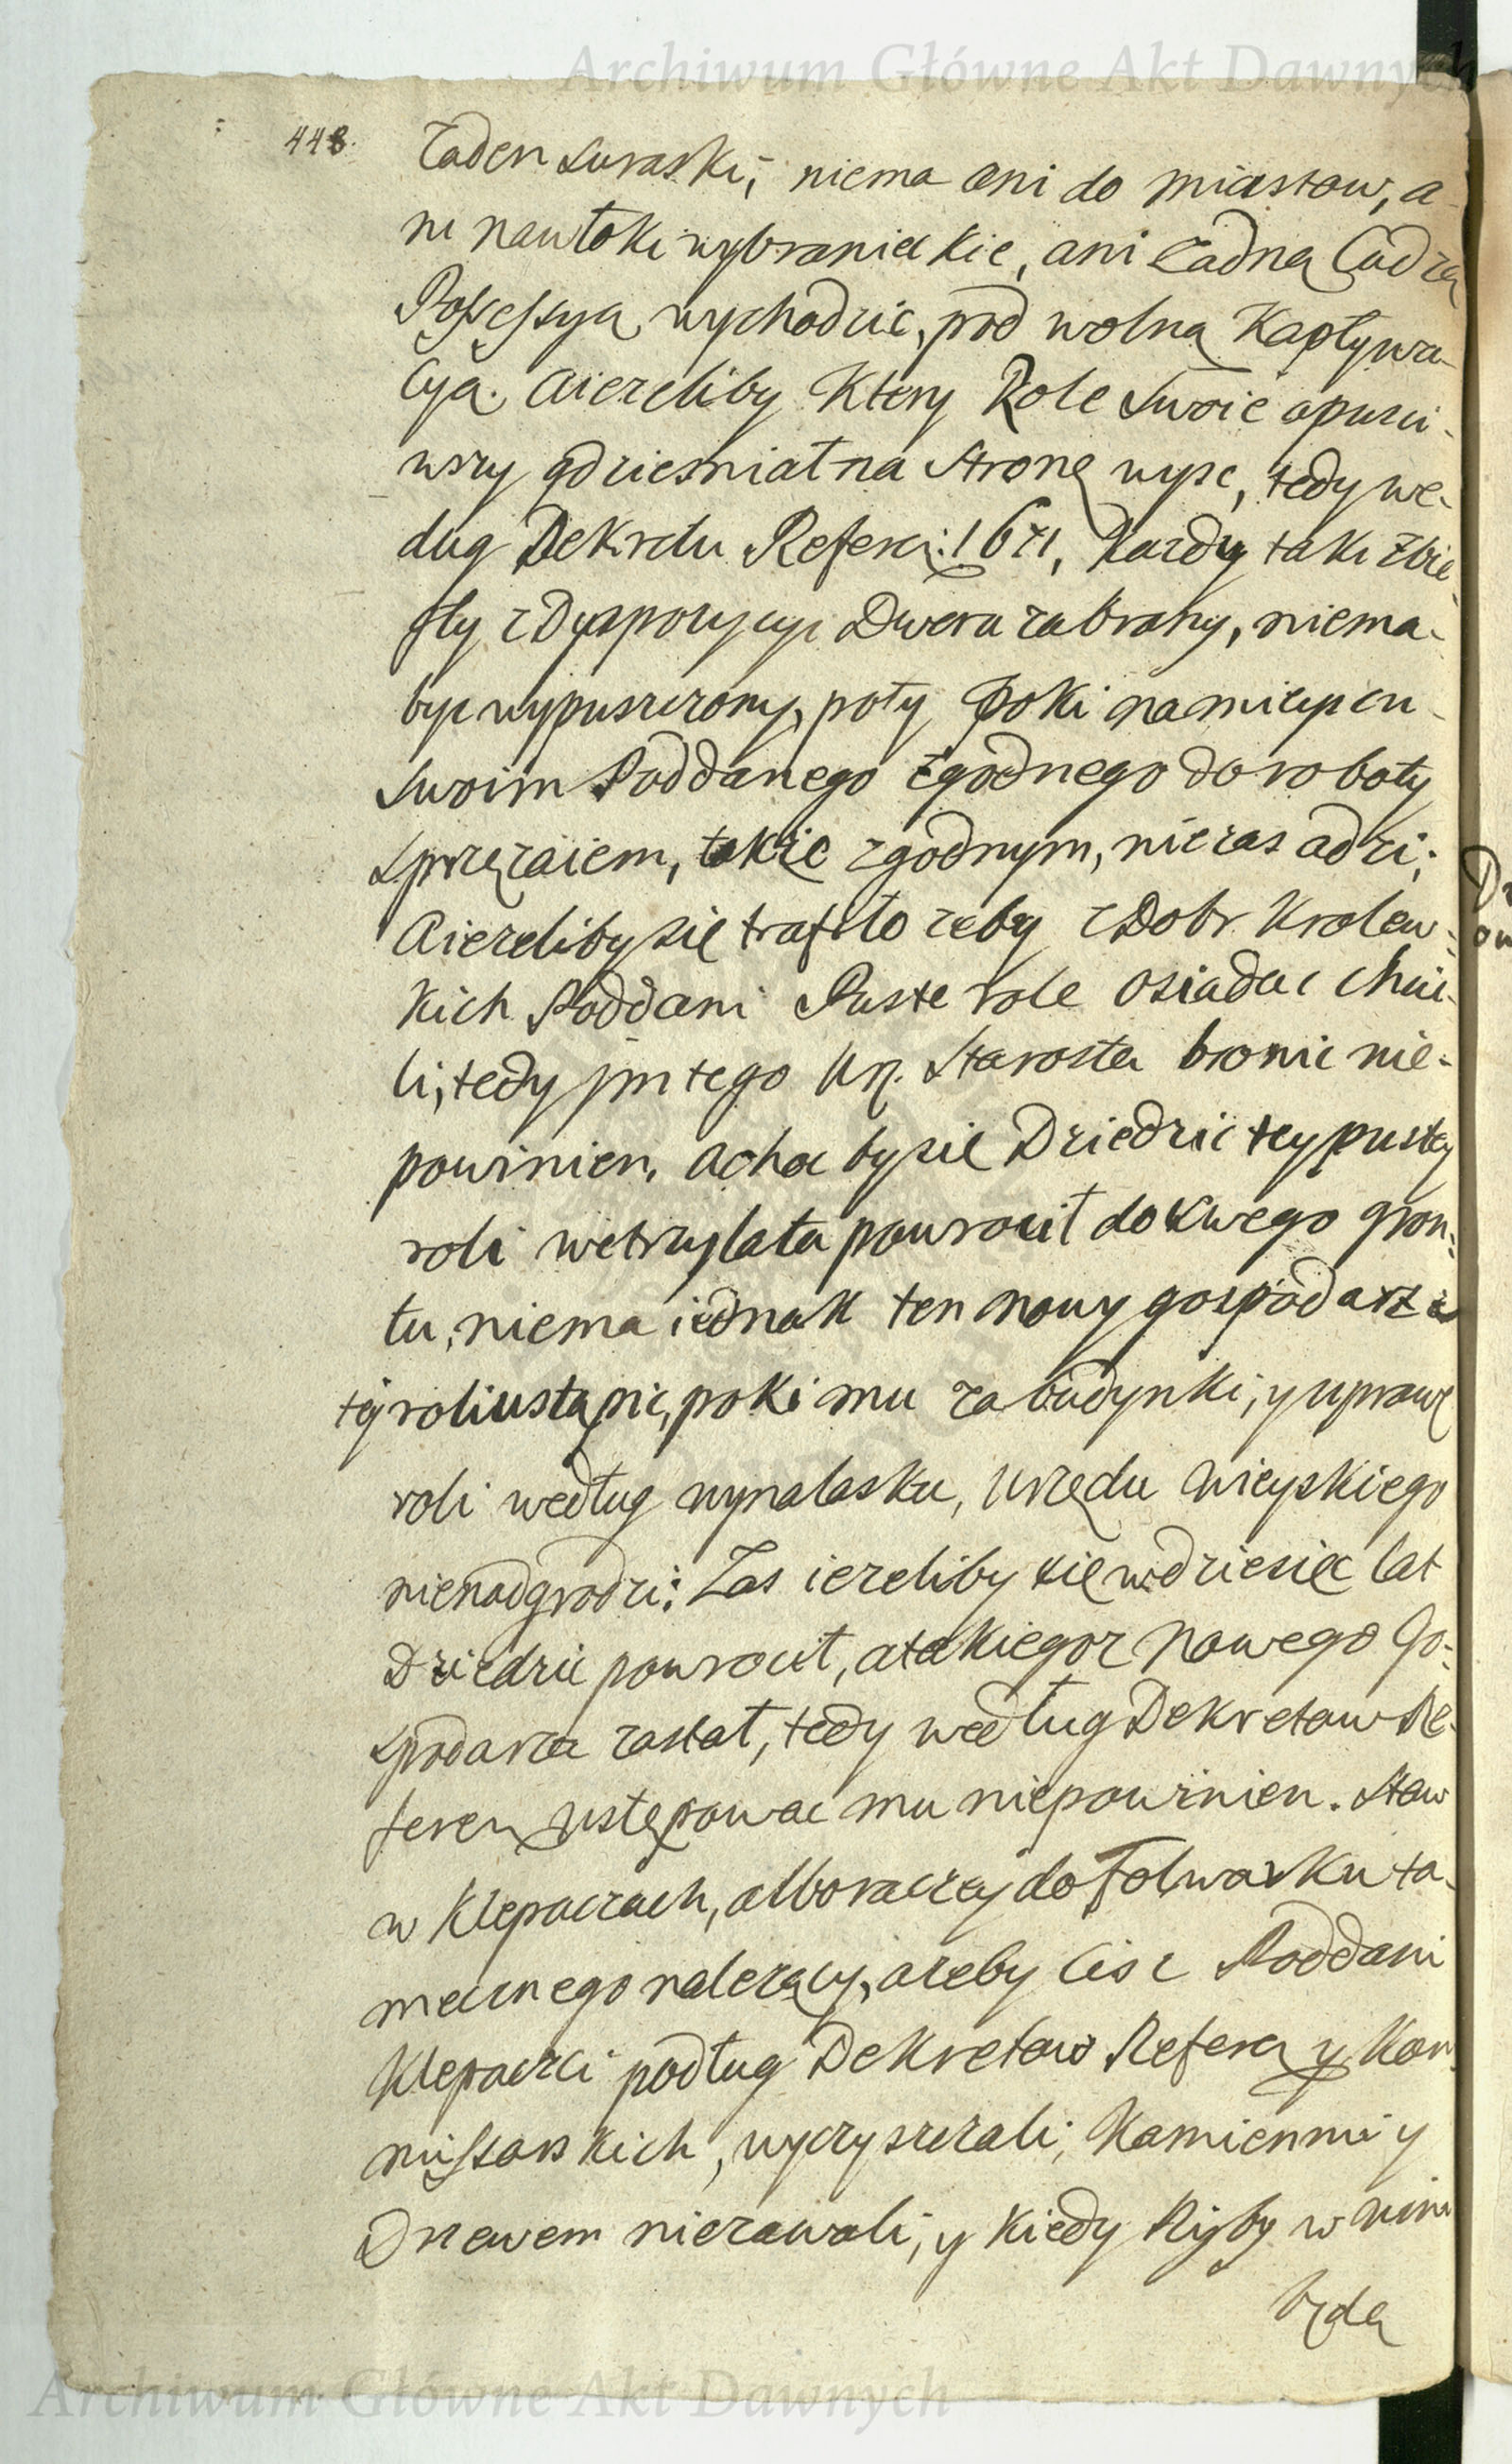 Archiwum Główne Akt Dawnych
448.
Zaden Suraski, niema ani do miastow, a-
ni nawłoki wybranieckie, ani żadną Cudzą
Possessyą wychodzic, pod wolną Kaptywa-
cyą. Aiezeliby Ktory Role Swoie opusci-
wszy gdziesmiał na Stronę wysc, tedy we-
dug Dekretu Referen: 1671, Kazdy taki zbie-
gły z Dyspozycyi Dworu zabrany, niema-
byc wypuszczony, poty poki namieyscu
Swoim Poddanego zgodnego do roboty
Sprzęzaiem, także zgodnym, niezasadzi;
Aiezeliby się trafiło zeby z Dobr Krolew-
kich Poddani Puste role osiadac chcie-
li, tedy im tego Ur. Starosta bronic nie-
powinien, achoc by się Dziedzic tey pustey
roli wetrzylata powrocił do swego gron-
tu, niema iednak ten nowy gospodarz z
tej roli ustąpic, poki mu za budynki, y uprawę
roli według wynalasku, Urzędu wieyskiego
nienadgrodzi; Zas iezeliby się wdziesięc lat
Dziedzic powrocił, atakiegoz nowego Go-
spodarza zastał, tedy według Dekretow Re-
feren ustępowac mu niepowinien. Staw
w Klepaczach, alboraczej do Folwarku ta-
mecznego nalezący, azeby cisz Poddani
Klepaczci podług Dekretow Referen y Kom-
missarskich, wyczyszczali, Kamienmi y
Drzewem niezawali, y kiedy Ryby w nim
będą
Archiwum Główne Akt Dawnych